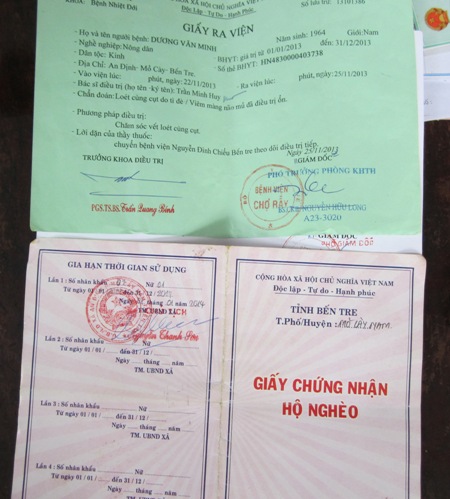 CỘNG HÒA XÃ HỘI CHỦ NGHĨA VIỆT NAM
Độc Lập - Tự do - Hạnh Phúc
KHOA: Bệnh Nhiệt Đới
Số lưu trữ: 13101386
GIẤY RA VIỆN
- Họ và tên người bệnh: DƯƠNG VĂN MINH
Năm sinh: 1964 Giới:Nam
- Nghề nghiệp:Nông dân
- BHYT: giá trị từ 01/01/2013 đến 31/12/2013
- Dân tộc: Kinh
- Số thẻ BHYT: HN4830000403738
- Địa Chỉ: An Định- Mỏ Cày- Bến Tre.
- Vào viện lúc: phút, ngày,22/11/2013
Ra viện lúc: phút, ngày,25/11/2013
- Bác sĩ điều trị (họ tên -ký tên): Trần Minh Huy
- Chẩn đoán:Loét cùng cụt do tì đè / Viêm màng não mủ đã điều trị ổn.
- Phương pháp điều trị:
Chăm sóc vết loét cùng cụt.
- Lời dặn của thầy thuốc:
chuyển bệnh viện Nguyễn Đình Chiểu Bến tre theo dõi điều trị tiếp.
Ngày 25/11/2013
TRƯỞNG KHOA ĐIỀU TRỊ
GIÁM ĐỐC
PHÓ TRƯỞNG PHÒNG KHTH
BỆNH VIỆN
CHỢ RẪY
PGS.TS.BS. Trần Quang Bính
NGUYỄN HỮU LONG
A23-3020
GIÁM ĐỐC
PHÓ GIÁM ĐỐC
GIA HẠN THỜI GIAN SỬ DỤNG
Lần 1 : Số nhân khẩu 02 Nữ 01
Từ ngày 01 / 01 / đến 31 / 12 /
Ngày tháng 01 năm 2014
TM.UBND XÃ
Nguyễn Thanh
Lần 2 : Số nhân khẩu Nữ
Từ ngày 01 / 01 / đến 31 / 12 /
Ngày tháng năm
TM. UBND XÃ
Lần 3 : Số nhân khẩu Nữ
Từ ngày 01 / 01 / đến 31 / 12 /
Ngày tháng năm
TM. UBND XÃ
Lần 4 : Số nhân khẩu Nữ
Từ ngày 01 / 01 / đến 31 / 12 /
Ngày tháng năm
CỘNG HÒA XÃ HỘI CHỦ NGHĨA VIỆT NAM
Độc lập - Tự do - Hạnh phúc
TỈNH BẾN TRE
T.Phố/Huyện: MỎ CÀY NAM
GIẤY CHỨNG NHẬN
HỘ NGHÈO